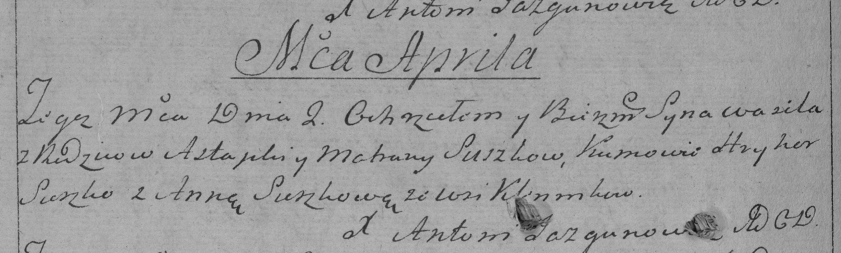 X Antoni Jazgunowicz AD CD.
Mca Aprila
Tegoz Mca Dnia 2. Ochrzciłem y Bierzm Syna Wasila
z Rodzicow Astapki y Matrany Suszkow, Kumowie Hryhor
Suszko z Anną Suszkową ze wsi
X Antoni Jazgunowicz AD CD.